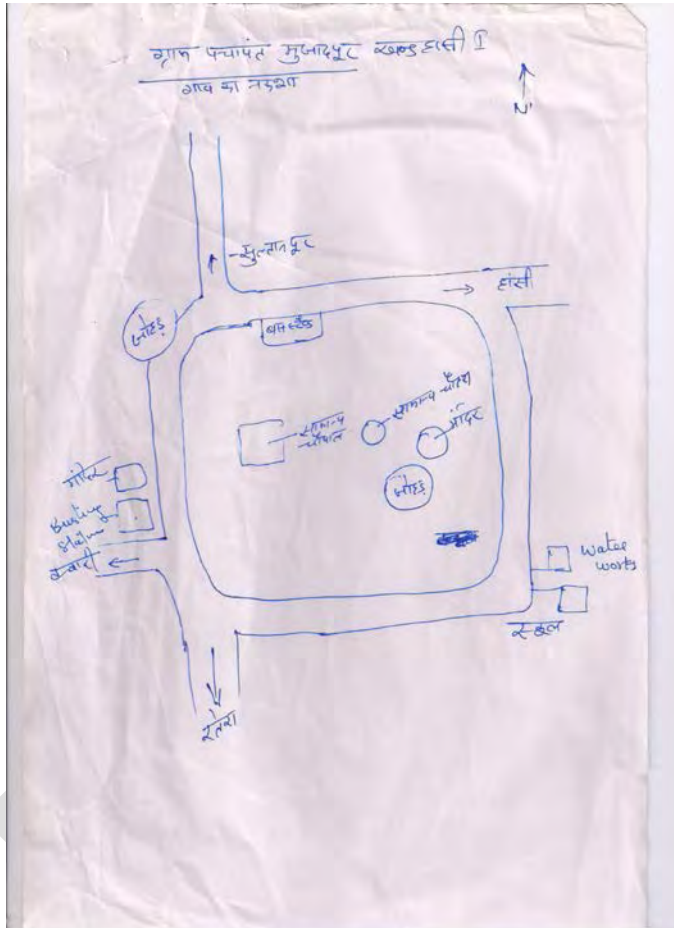 ग्राम पंचायत मुजादपुर खण्ड हांसी I
गांव का नक्शा
N
सुल्तानपुर
हांसी
जोहड़
बस स्टैंड
सामान्य
चौपाल
सामान्य चौपाल
मंदिर
जोहड़
मंदिर
Busting
Station
water
works
स्कूल